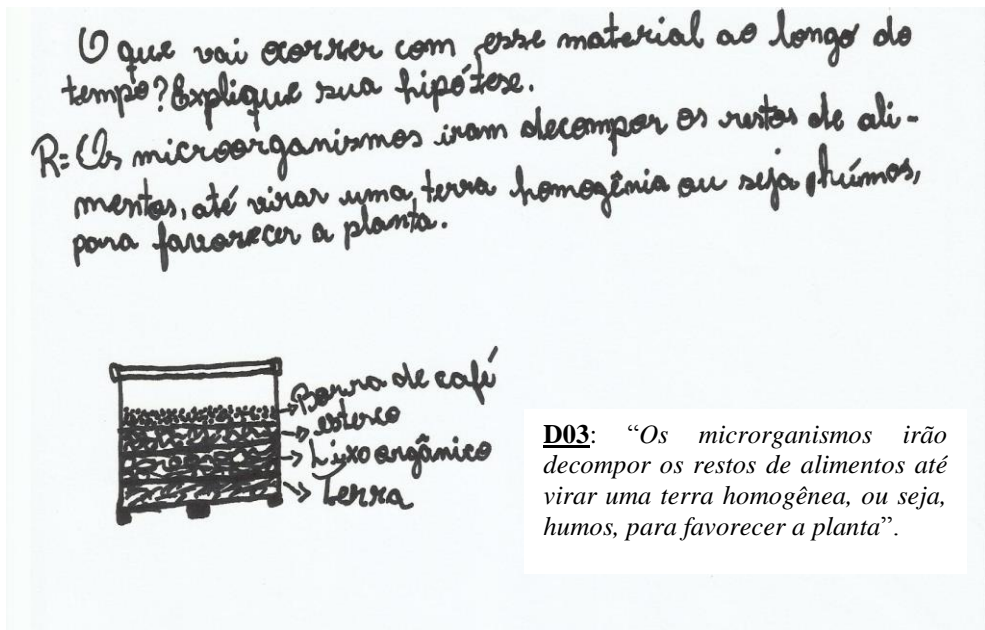 O que vai ocorrer com esse material ao longo do
tempo? Explique sua hipótese.
R= Os microorganismos iram decompor os restos de ali-
mentos, até virar uma terra homogênia ou seja, húmos,
para favorecer a planta.
Borra de café
esterco
Lixo orgânico
terra
D03: “Os microrganismos irão
decompor os restos de alimentos até
virar uma terra homogênea, ou seja,
humos, para favorecer a planta”.